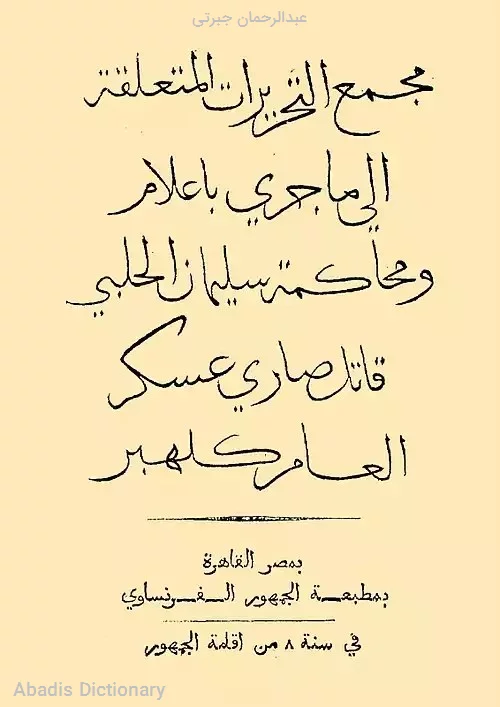 عبدالرحمان جبرتی
مجمع التحريرات المتعلقة
الي ما جري باعلام
ومحاكمة سليمان الحلبي
قاتل صاري عسكر
العام كلهبر
بمصر القاهرة
بمطبعة الجمهور الفرنساوي
في سنة ٨ من اقامة الجمهور
Abadis Dictionary